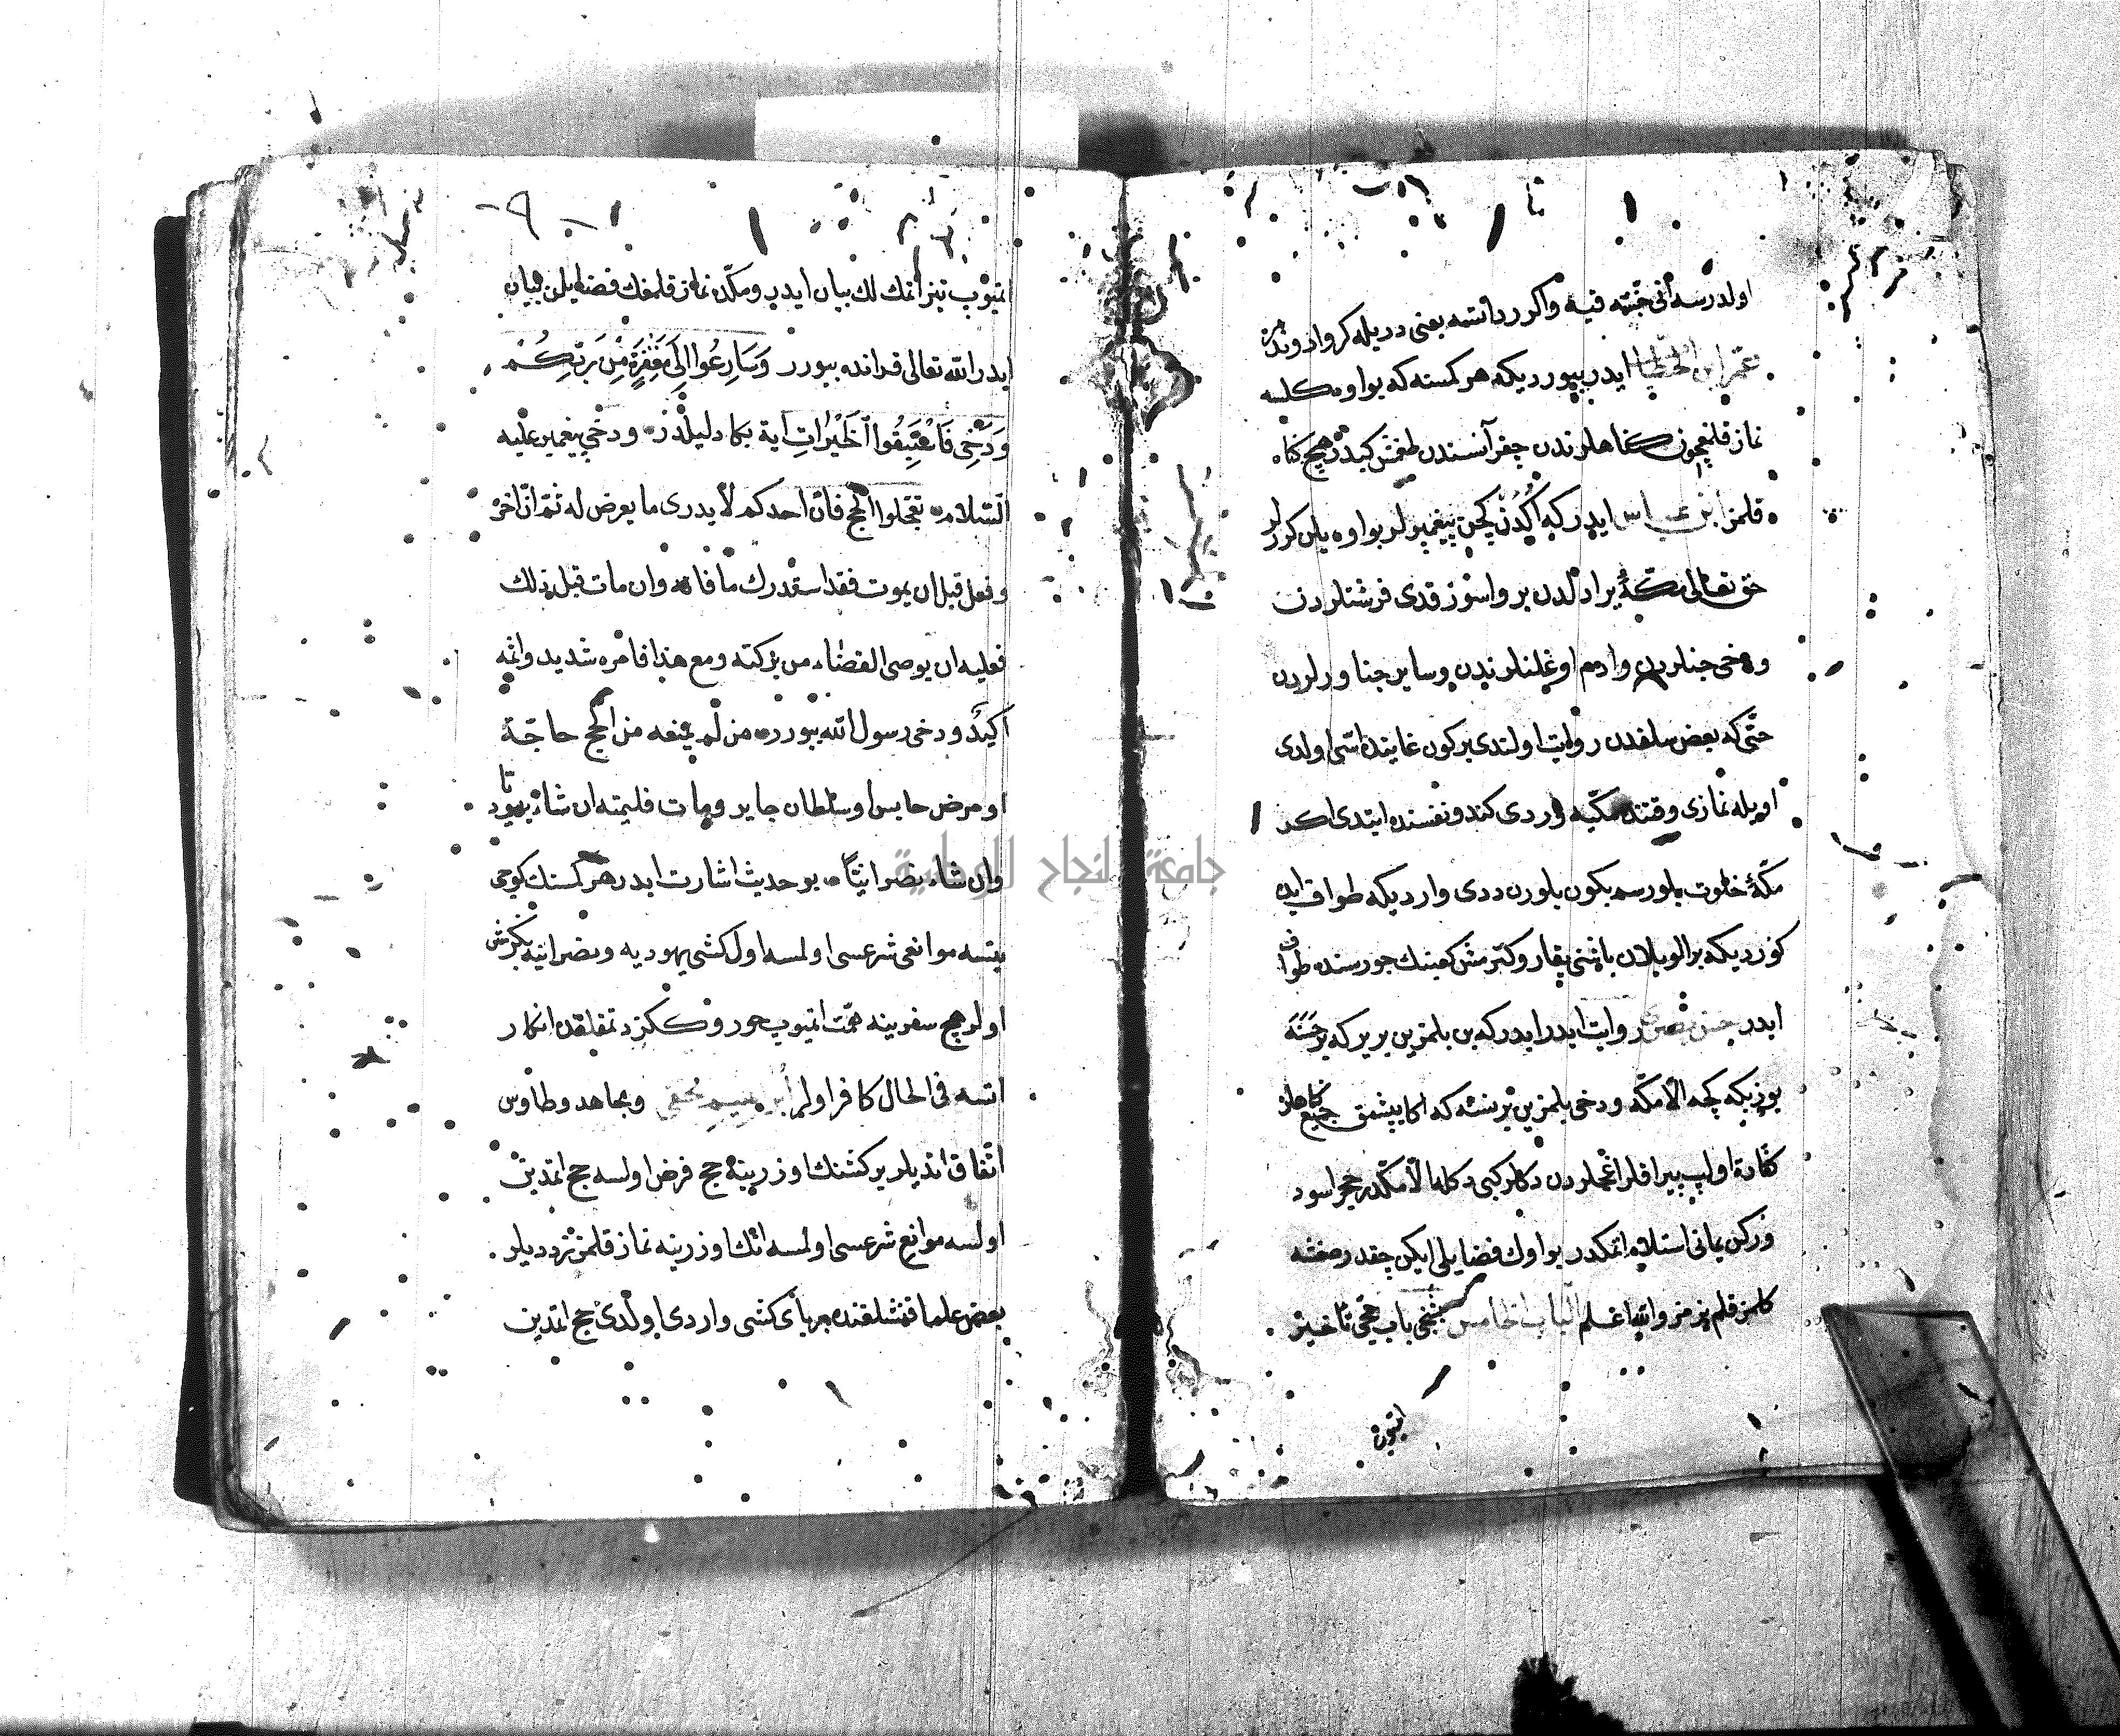 اولدرسه انی جنته قیه واکر ردّ اتسه یعنی دریله کروا دوندرر
عمر ابن الخطاب ایدر بیورردیکه هر کمسنه که بو اوه کلسه
نماز قلمغیچون کناهلرندن چقر آنسندن طغمش کبیدر هیچ کناه
قلمز ابن عباس ایدر که اکدن کچن پیغمبرلر بو اوه یلن کررلر
حق تعالی مکهٔ یرادلدن برو اسوزقدی فرشتلردن
ودخی جنلردن وادم اوغلنلرندن وسایر جناورلردن
حتی که بعض سلفدن روایت اولندی برکون غایتده اسی اولدی
اویله نمازی وقتنده مکیه واردی کندو نفسنده ایتدی اکر
مکهٔ خلوت بلورسم بکون بلورن ددی واردیکه طواف ایدن
کوردیکه بر الو ییلان باشنی یقارو کترمش کعبنك جورسنده طواف
ایدر حسن بصری روایت ایدر ایدرکه بن بلمزین بر یرکه بر حسنه
یوز بیکه کچه الا مکه ودخی بلمزین بر نسنه که اکا یپشمق جمیع کناهلره
کفارة اولب پیراقلر اغجلردن دکلر کبی دکلدر الا مکهدر حجر اسود
ورکن یمانی استلام اتمکدر بو اوك فضایلی ایکن چقدر صغشه
کلمز قلم یزمز والله اعلم الباب الخامس بشنجی باب حجی تأخیر
اتمیوب
اتمیوب تیز اتمك لك بیان ایدر ومکده نماز قلمغك فضایلن بیان
ایدر الله تعالی قرانده بیورر وَسَارِعُوا اِلَی مَغْفِرَةٍ مِنْ رَبِّکُمْ
وَدَخِی فَاسْتَبِقُوا الْخَیْرَاتِ ایة بکا دلیلدر ودخی پیغمبر علیه
السّلام تعجّلوا الحج فانّ احدکم لا یدری ما یعرض له ثمّ ان اخر
وفعل قبل ان یموت فقد استدرك ما فاته وان مات قبل ذلك
فعلیه ان یوصی القضاء من ترکته ومع هذا فامره شدید واثمه
اکید ودخی رسول الله بیورر من لم یمنعه من الحج حاجة
او مرض حابس او سلطان جایر ومات فلیمته ان شاء یهودیا
وان شاء نصرانیّا بو حدیث اشارت ایدر هر کسنك کوجی
یتسه موانعی شرعسی اولمسه اول کشی یهودیه ونصرانیه بکزش
اولر هیچ سفرینه همّت اتمیوب جور وکزدتمقلقدن انکار
اتسه فی الحال کافر اولر ابرهیم نخعی ومجاهد وطاوس
اتّفاق اتدیلر بر کشنك اوزرینه حج فرض اولسه حج اتمدین
اولسه موانع شرعسی اولمسه انك اوزرینه نماز قلمزز ددیلر
بعض علما قتنده بر بای کشی واردی اولدی حج اتمدین
جامعة النجاح الوطنية